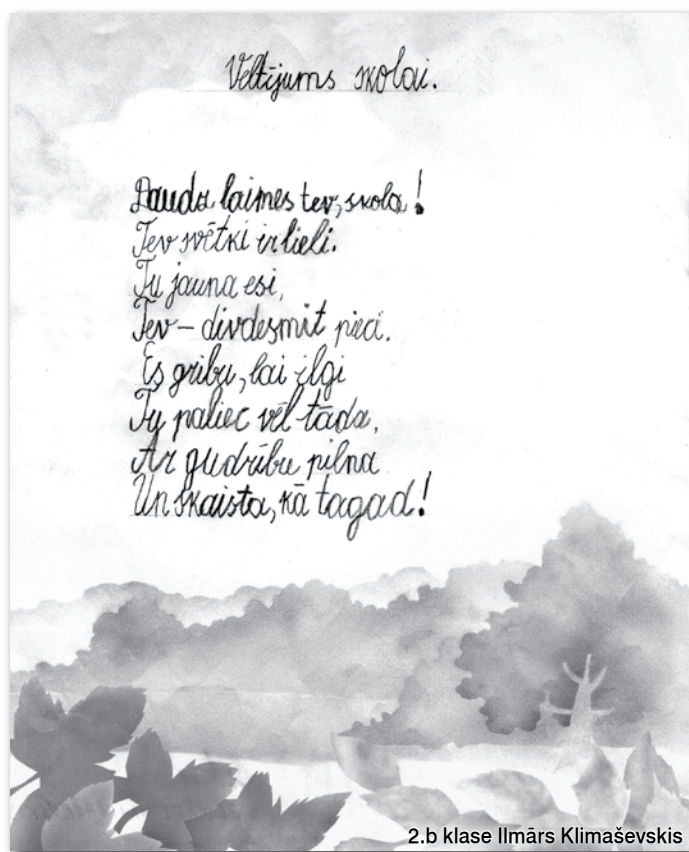 Veltījums skolai.
Daudz laimes tev, skola!
Tev svētki ir lieli.
Tu jauna esi,
Tev – divdesmit pieci.
Es gribu, lai ilgi
Tu paliec vēl tāda,
Ar gudrību pilna
Un skaista, kā tagad!
2.b klase Ilmārs Klimaševskis